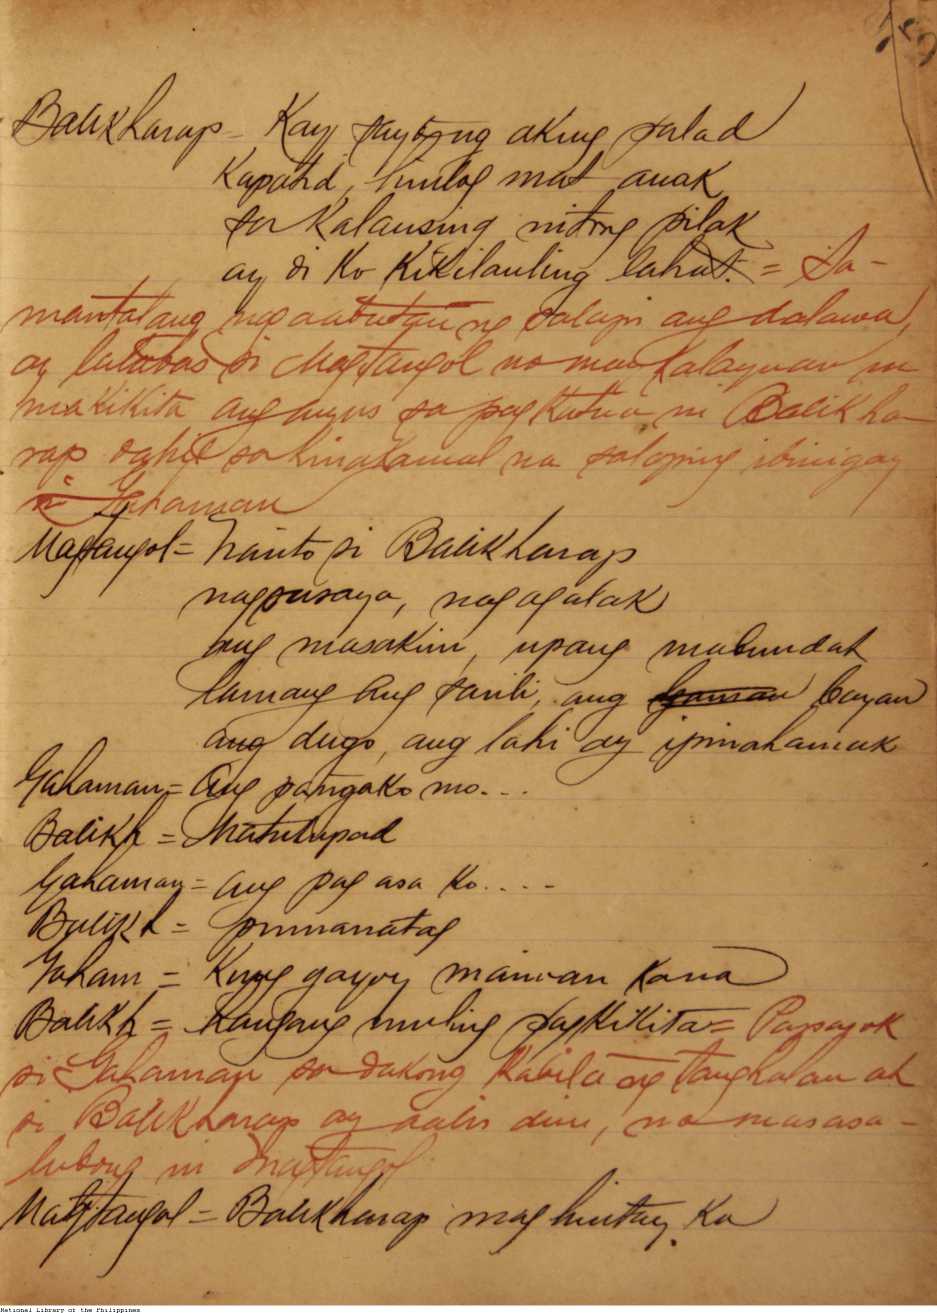 Balikharap = Kay
aking palad
Kapatid, hinlog mat anak
sa Kalansing nitong pilak
ay di Ko Kikilanling lahat. = Sa-
mantalang nag aabutan ng salapi ang dalawa,
ay lalabas si Magtangol na mula
makikita ang anyos sa pagkatua ni Balikha-
rap dahil sa kinakamal na salaping ibinigay
ni Gahaman
Magtangol = Nainto si Balikharap
nagsasaya, nagagalak
ang masakim, upang mabundat
lamang ang sarili, ang bayan
ang dugo, ang lahi ay ipinahamak
Gahaman = Ang pangako mo...
Balikh = Matutupad
Gahaman = ang pag asa Ko....
Balikh = pumanatag
Gaham = Kung gayoy maiwan Kana
Balikh = Hangang muling pagkikita = Papasok
si Gahaman sa dakong Kabila ng tanghalan at
si Balikharap ay aalis din, na masasa-
lubong ni Magtangol
Magtangol = Balikharap mag hintay Ka
National Library of the Philippines